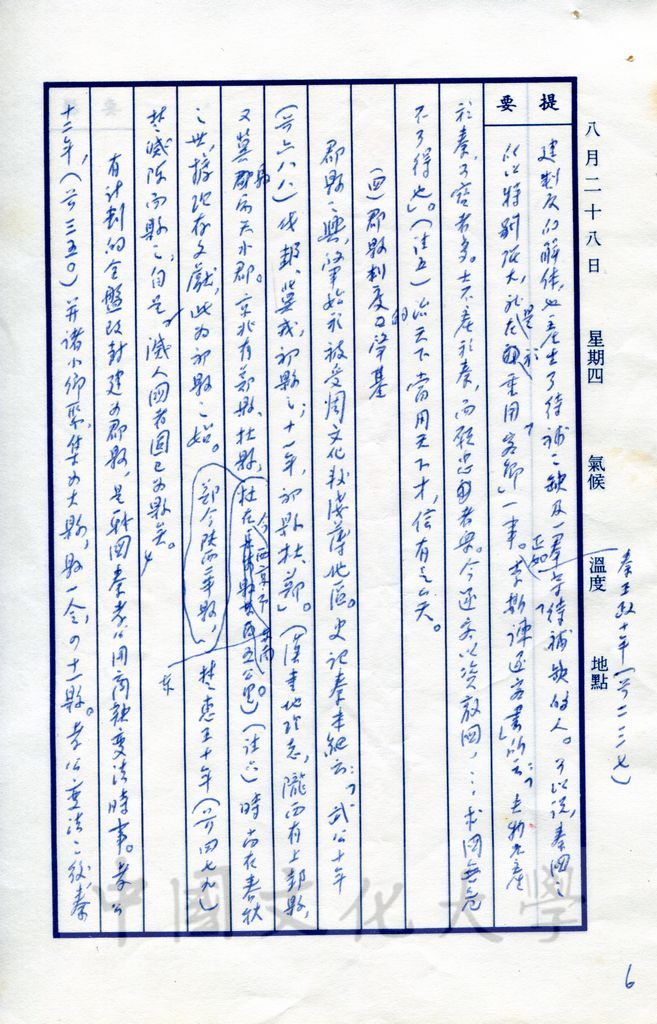 八月二十八日 星期四 氣候 溫度 地點
秦王政十年(公二三七)
提要
建制度的解体,也產生了待補之缺及一羣等待補缺的人。可以說,秦國之
所以特別強大,是於「重用客卿」一事。李斯諫逐客書所云:「夫物不產
於秦,可寶者多。士不產於秦,而願忠者眾。今逐客以資敵國,…求國無危
不可得也」。(註五)治天下當用天下才,信有之矣。
(四)郡縣制度的肇基
郡縣之興,肇始於被受周文化較淺薄地區。史記秦本紀云:「武公十年
(公六八八)伐邽、冀戎,初縣之;十一年,初縣杜、鄭」。(漢書地理志,隴西有上邽縣,
又冀縣屬天水郡。京兆有鄭縣、杜縣,杜在今西京市東南。)(註六)時尚在春秋
之世,據現存文獻,此為初縣之始。鄭今陝西華縣,楚惠王十年(公四七九)
楚滅陳而縣之,自是,滅人國者固已為縣矣。
有計劃的全盤改封建為郡縣,是戰國秦孝公用商鞅變法時事。孝公
十二年,(公三五〇)并諸小鄉聚,集為大縣,縣一令,四十一縣。孝公變法之後秦
東
中國文化大學
6